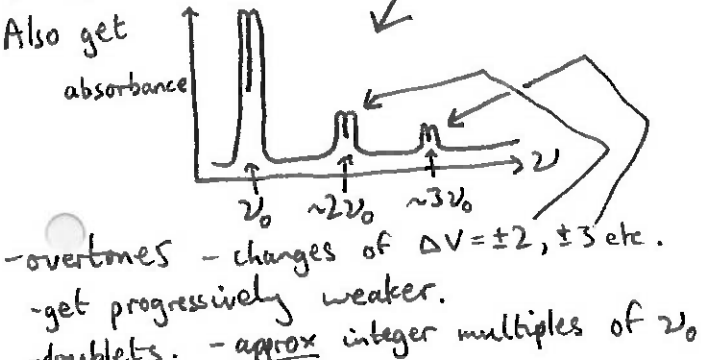 Also get
absorbance
ν
ν₀ ~2ν₀ ~3ν₀
-overtones - changes of ΔV = ±2, ±3 etc.
-get progressively weaker.
doublets. - approx integer multiples of ν₀